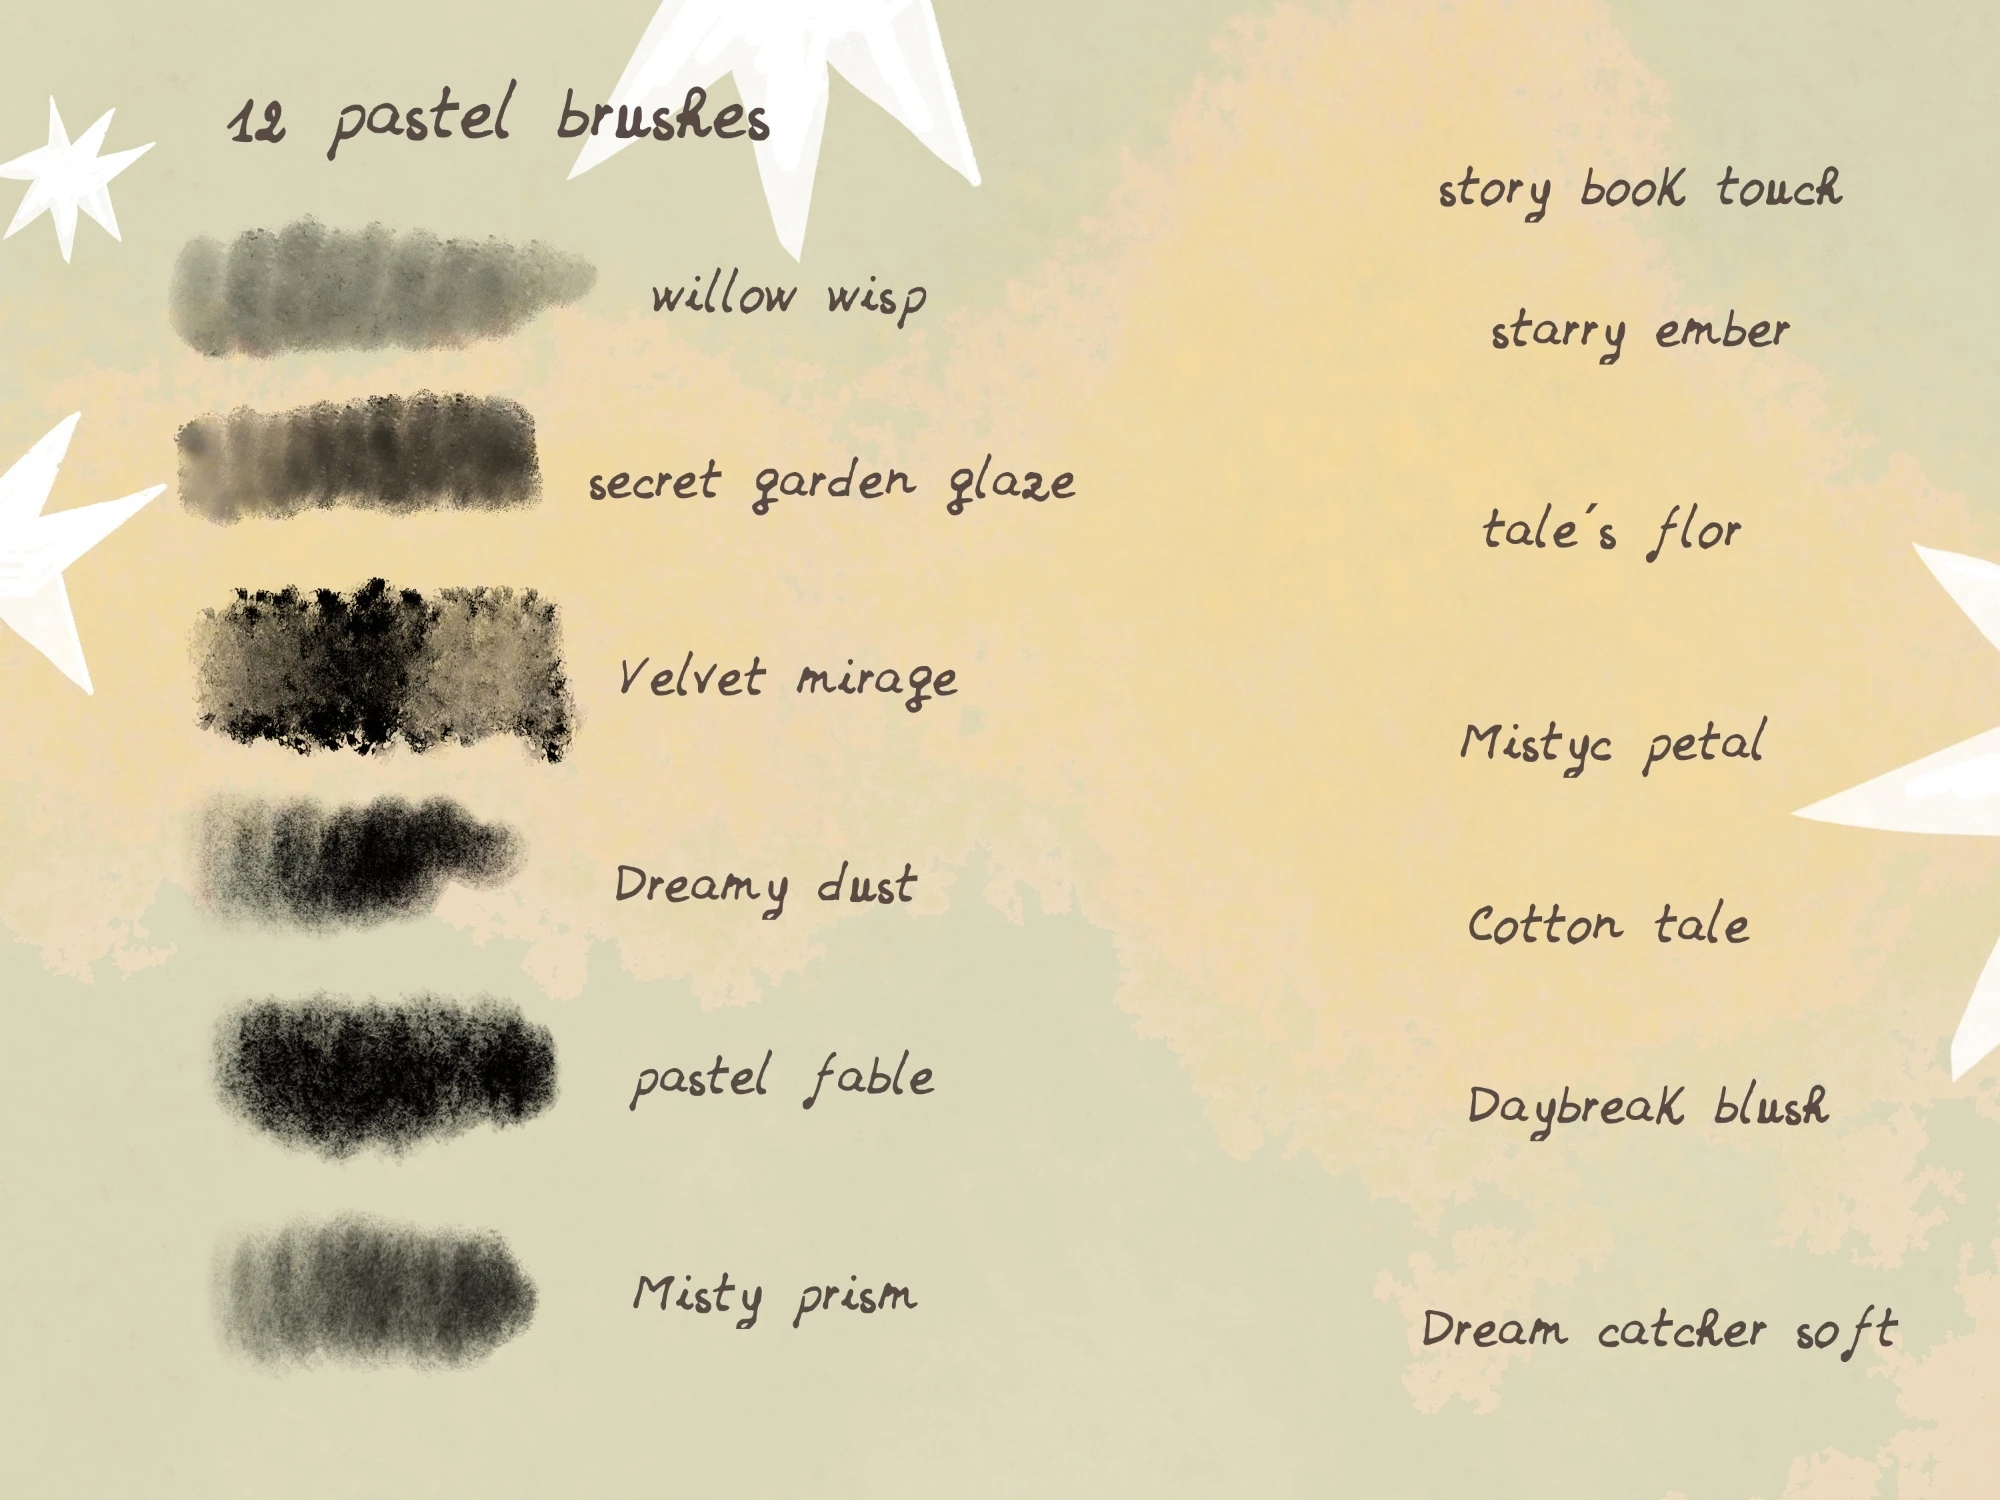 12 pastel brushes
willow wisp
secret garden glaze
Velvet mirage
Dreamy dust
pastel fable
Misty prism
story book touch
starry ember
tale´s flor
Mistyc petal
Cotton tale
Daybreak blush
Dream catcher soft